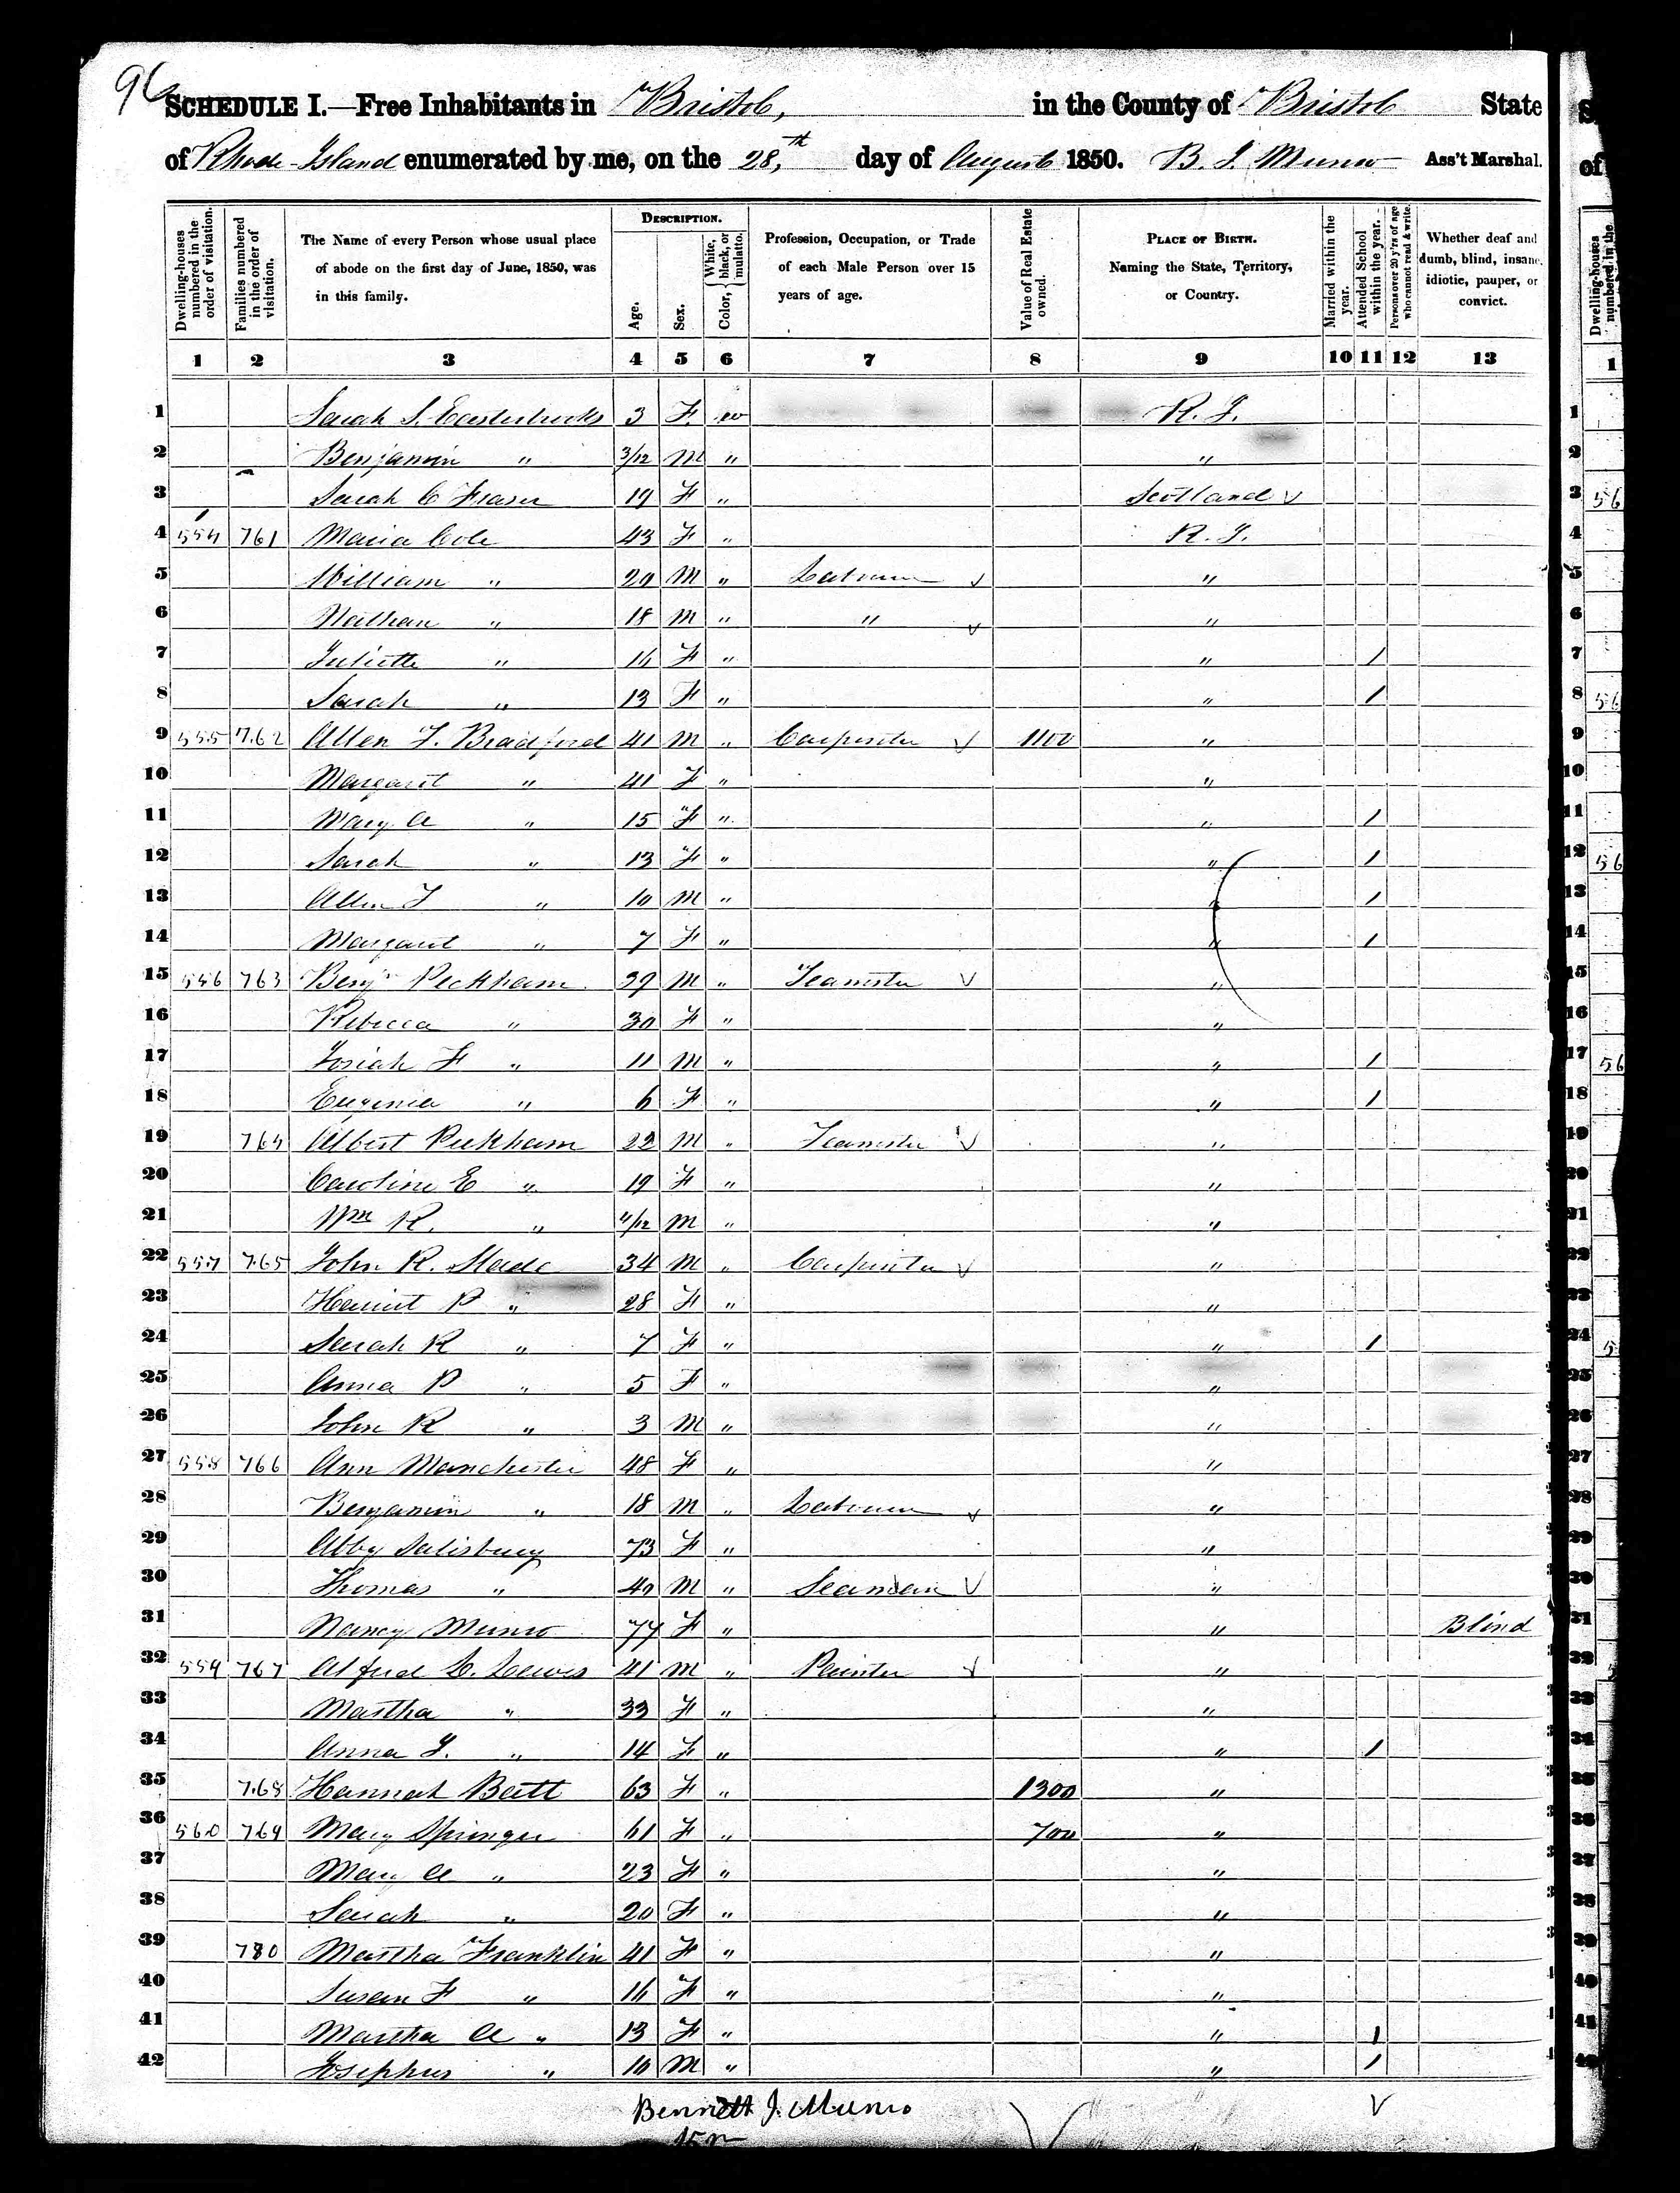 96
SCHEDULE I.—Free Inhabitants in Bristol, in the County of Bristol State
of Rhode-Island enumerated by me, on the 28,th day of August 1850. B. J. Munro Ass't Marshal.
Dwelling-houses numbered in the order of visitation.
Families numbered in the order of visitation.
The Name of every Person whose usual place of abode on the first day of June, 1850, was in this family.
DESCRIPTION.
Age.
Sex.
Color, { White, black, or mulatto.
Profession, Occupation, or Trade of each Male Person over 15 years of age.
Value of Real Estate owned.
PLACE OF BIRTH. Naming the State, Territory, or Country.
Married within the year.
Attended School within the year.
Persons over 20 y'rs of age who cannot read & write.
Whether deaf and dumb, blind, insane, idiotic, pauper, or convict.
1 2 3 4 5 6 7 8 9 10 11 12 13
1 Sarah S. Easterbrooks 3 F. w R. I.
2 Benjamin " 3/12 M " "
3 Sarah C Fraser 19 F " Scotland
4 554 761 Maria Cole 43 F " R. I.
5 William " 20 M " Laborer "
6 Nathan " 18 M " " "
7 Juliette " 16 F " " /
8 Sarah " 13 F " " /
9 555 762 Allen T. Bradford 41 M " Carpenter 1100 "
10 Margaret " 41 F " "
11 Mary A " 15 F " " /
12 Sarah " 13 F " " /
13 Allen T " 10 M " " /
14 Margaret " 7 F " " /
15 556 763 Benjn Peckham 39 M " Teamster "
16 Rebecca " 30 F " "
17 Josiah F " 11 M " " /
18 Eugenia " 6 F " " /
19 764 Albert Peckham 22 M " Teamster "
20 Caroline E " 19 F " "
21 Wm R. " 4/12 M " "
22 557 765 John R. Slade 34 M " Carpenter "
23 Harriet P " 28 F " "
24 Sarah R " 7 F " " /
25 Anna P " 5 F " "
26 John R " 3 M " "
27 558 766 Ann Manchester 48 F " "
28 Benjamin " 18 M " Laborer "
29 Abby Salisbury 73 F " "
30 Thomas " 40 M " Seaman "
31 Nancy Munro 77 F " " Blind
32 559 767 Alfred L. Lewis 41 M " Painter "
33 Martha " 33 F " "
34 Anna J. " 14 F " " /
35 768 Hannah Batt 63 F " 1300 "
36 560 769 Mary Springer 61 F " 700 "
37 Mary A " 23 F " "
38 Sarah " 20 F " "
39 780 Martha Franklin 41 F " "
40 Susan F " 16 F " "
41 Martha A " 13 F " " /
42 Josephus " 10 M " " /
Bennett J. Munro